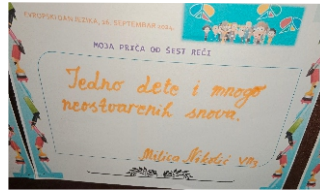 EVROPSKI DAN JEZIKA, 26. SEPTEMBAR 2024.
MOJA PRIČA OD ŠEST REČI
Jedno dete i mnogo
neostvarenih snova.
Milica Nikolić VII3